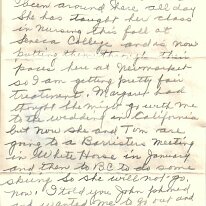 been around here all day
She has taught her class
in nursing this fall at
Seneca College and is now
putting them through their
paces here at Newmarket
so I am getting pretty fair
treatment. Margaret had
thought she might go with me
to the wedding in California
but now she and Tom are
going to a Barristers Meeting
in White Horse in January
and then to BC to do some
skiing so she will not go,
now, I told you John phoned
and wanted me to go out and